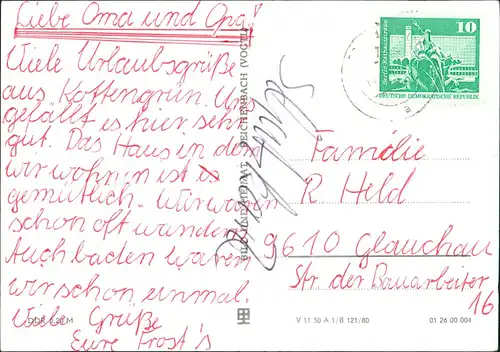 Liebe Oma und Opa!
Viele Urlaubsgrüße
aus Kottengrün. Uns
gefällt es hier sehr
gut. Das Haus in dem
wir wohnen ist
gemütlich. Wir waren
schon oft wandern
Auch baden waren
wir schon einmal.
Viele Grüße
Eure Frost's
DDR M
BILD UND HEIMAT REICHENBACH (VOGTL)
10
Berlin, Rathausstraße
DEUTSCHE DEMOKRATISCHE REPUBLIK
a
Familie
R. Held
9610 Glauchau
Str. der Bauarbeiter
16
V 11 50 A 1/B 121/80
01 26 00 004